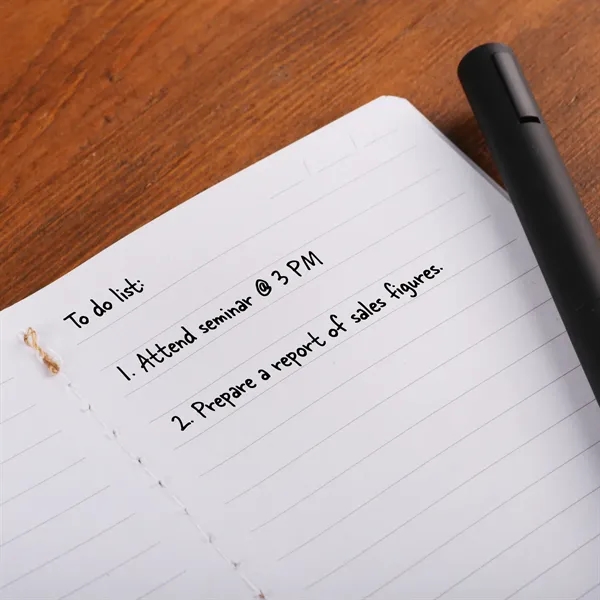 To do list:
1. Attend seminar @ 3 PM
2. Prepare a report of sales figures.